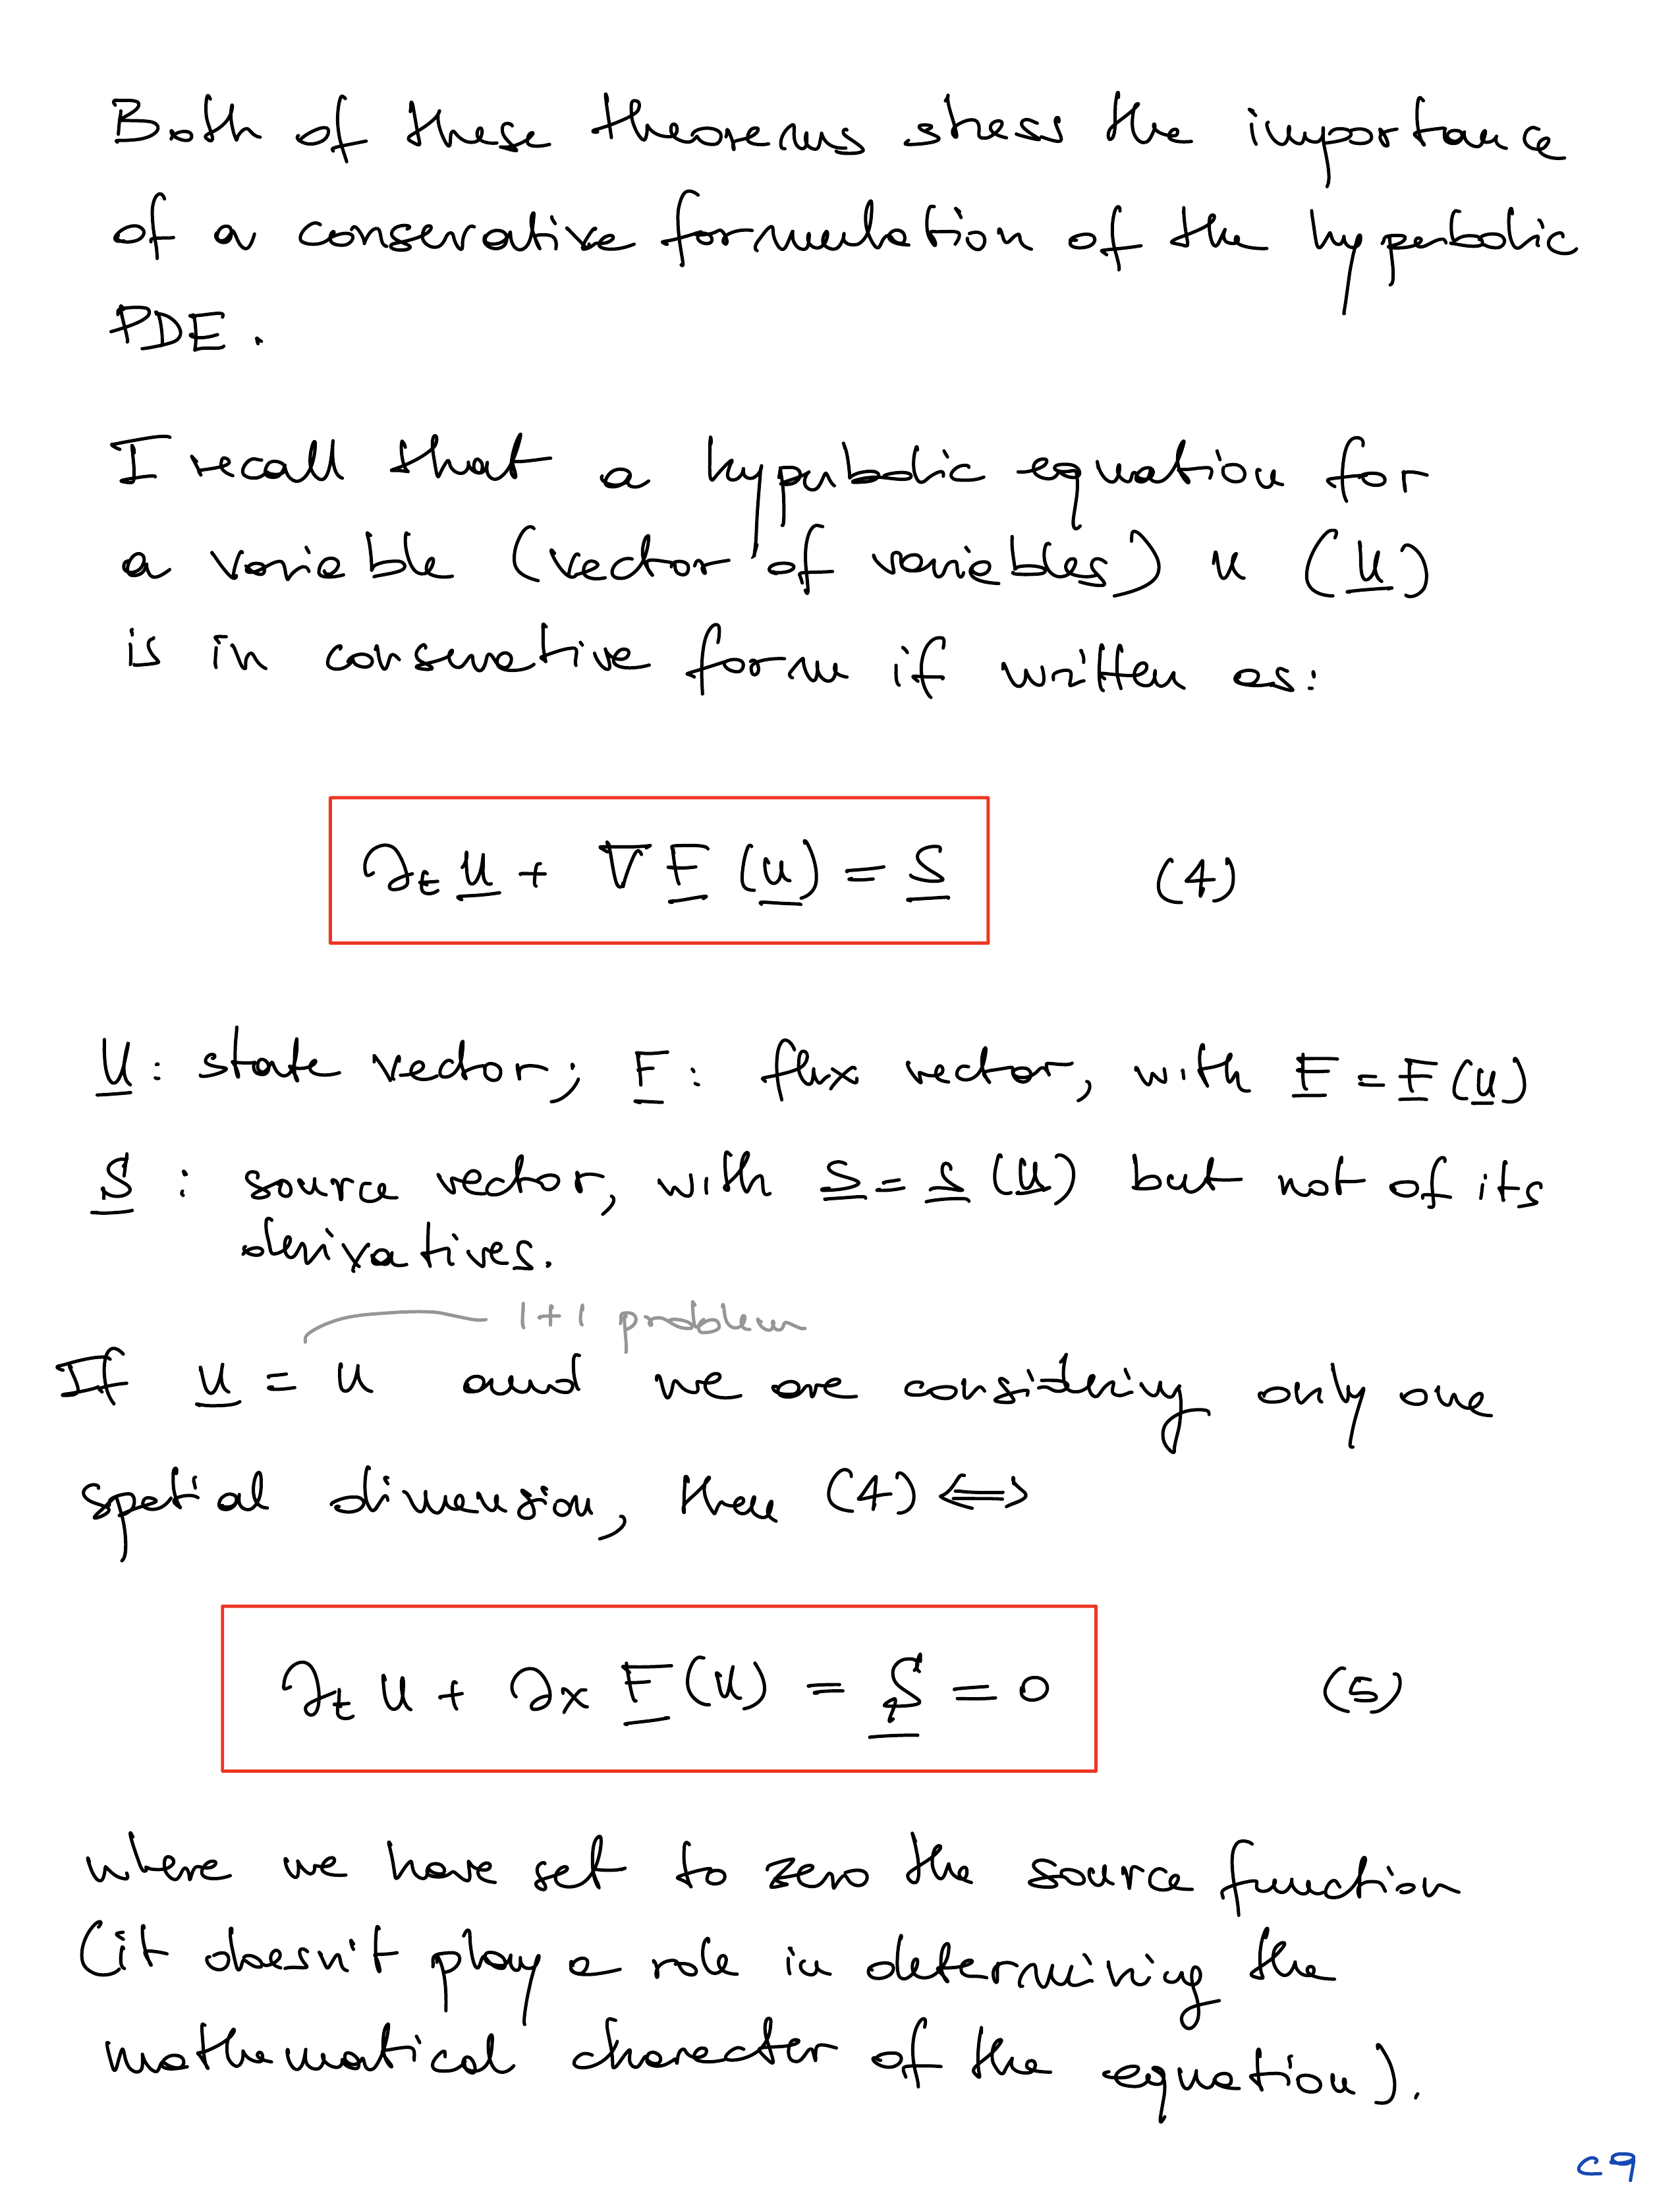 Both of these theorems stress the importance
of a conservative formulation of the hyperbolic
PDE.
I recall that a hyperbolic equation for
a variable (vector of variables) u (u̲)
is in conservative form if written as:
∂ₜ u̲ + ∇ F̲ (u̲) = S̲ (4)
U̲ : state vector; F̲ : flux vector, with F̲ = F̲(u̲)
S̲ : source vector, with S̲ = S̲ (u̲) but not of its
derivatives.
1+1 problem
If u̲ = u and we are considering only one
spatial dimension, then (4) ⟺
∂ₜ u + ∂x F̲(u) = S̲ = 0 (5)
where we have set to zero the source function
(it doesn't play a role in determining the
mathematical character of the equation).
C9